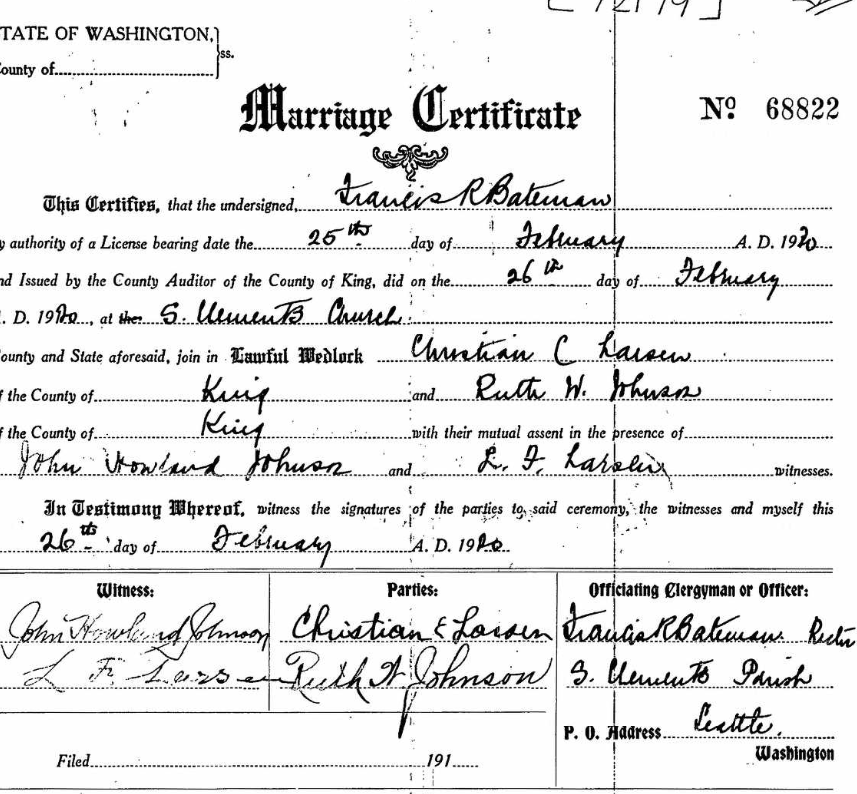 STATE OF WASHINGTON,
ss.
County of
Marriage Certificate
Nº 68822
This Certifies, that the undersigned, Francis R Bateman
by authority of a License bearing date the 25th day of February A. D. 1920
and Issued by the County Auditor of the County of King, did on the 26th day of February
A. D. 1920, at the S. Clements Church
County and State aforesaid, join in Lawful Wedlock Christian C Larsen
of the County of King and Ruth W. Johnson
of the County of King with their mutual assent in the presence of
John Howland Johnson and L. F. Larsen witnesses.
In Testimony Whereof, witness the signatures of the parties to said ceremony, the witnesses and myself this
26th day of February A. D. 1920
Witness: Parties: Officiating Clergyman or Officer:
John Howland Johnson Christian C Larsen Francis R Bateman Rector
L F Larsen Ruth W Johnson S. Clements Parish
P. O. Address Seattle,
Filed 191 Washington